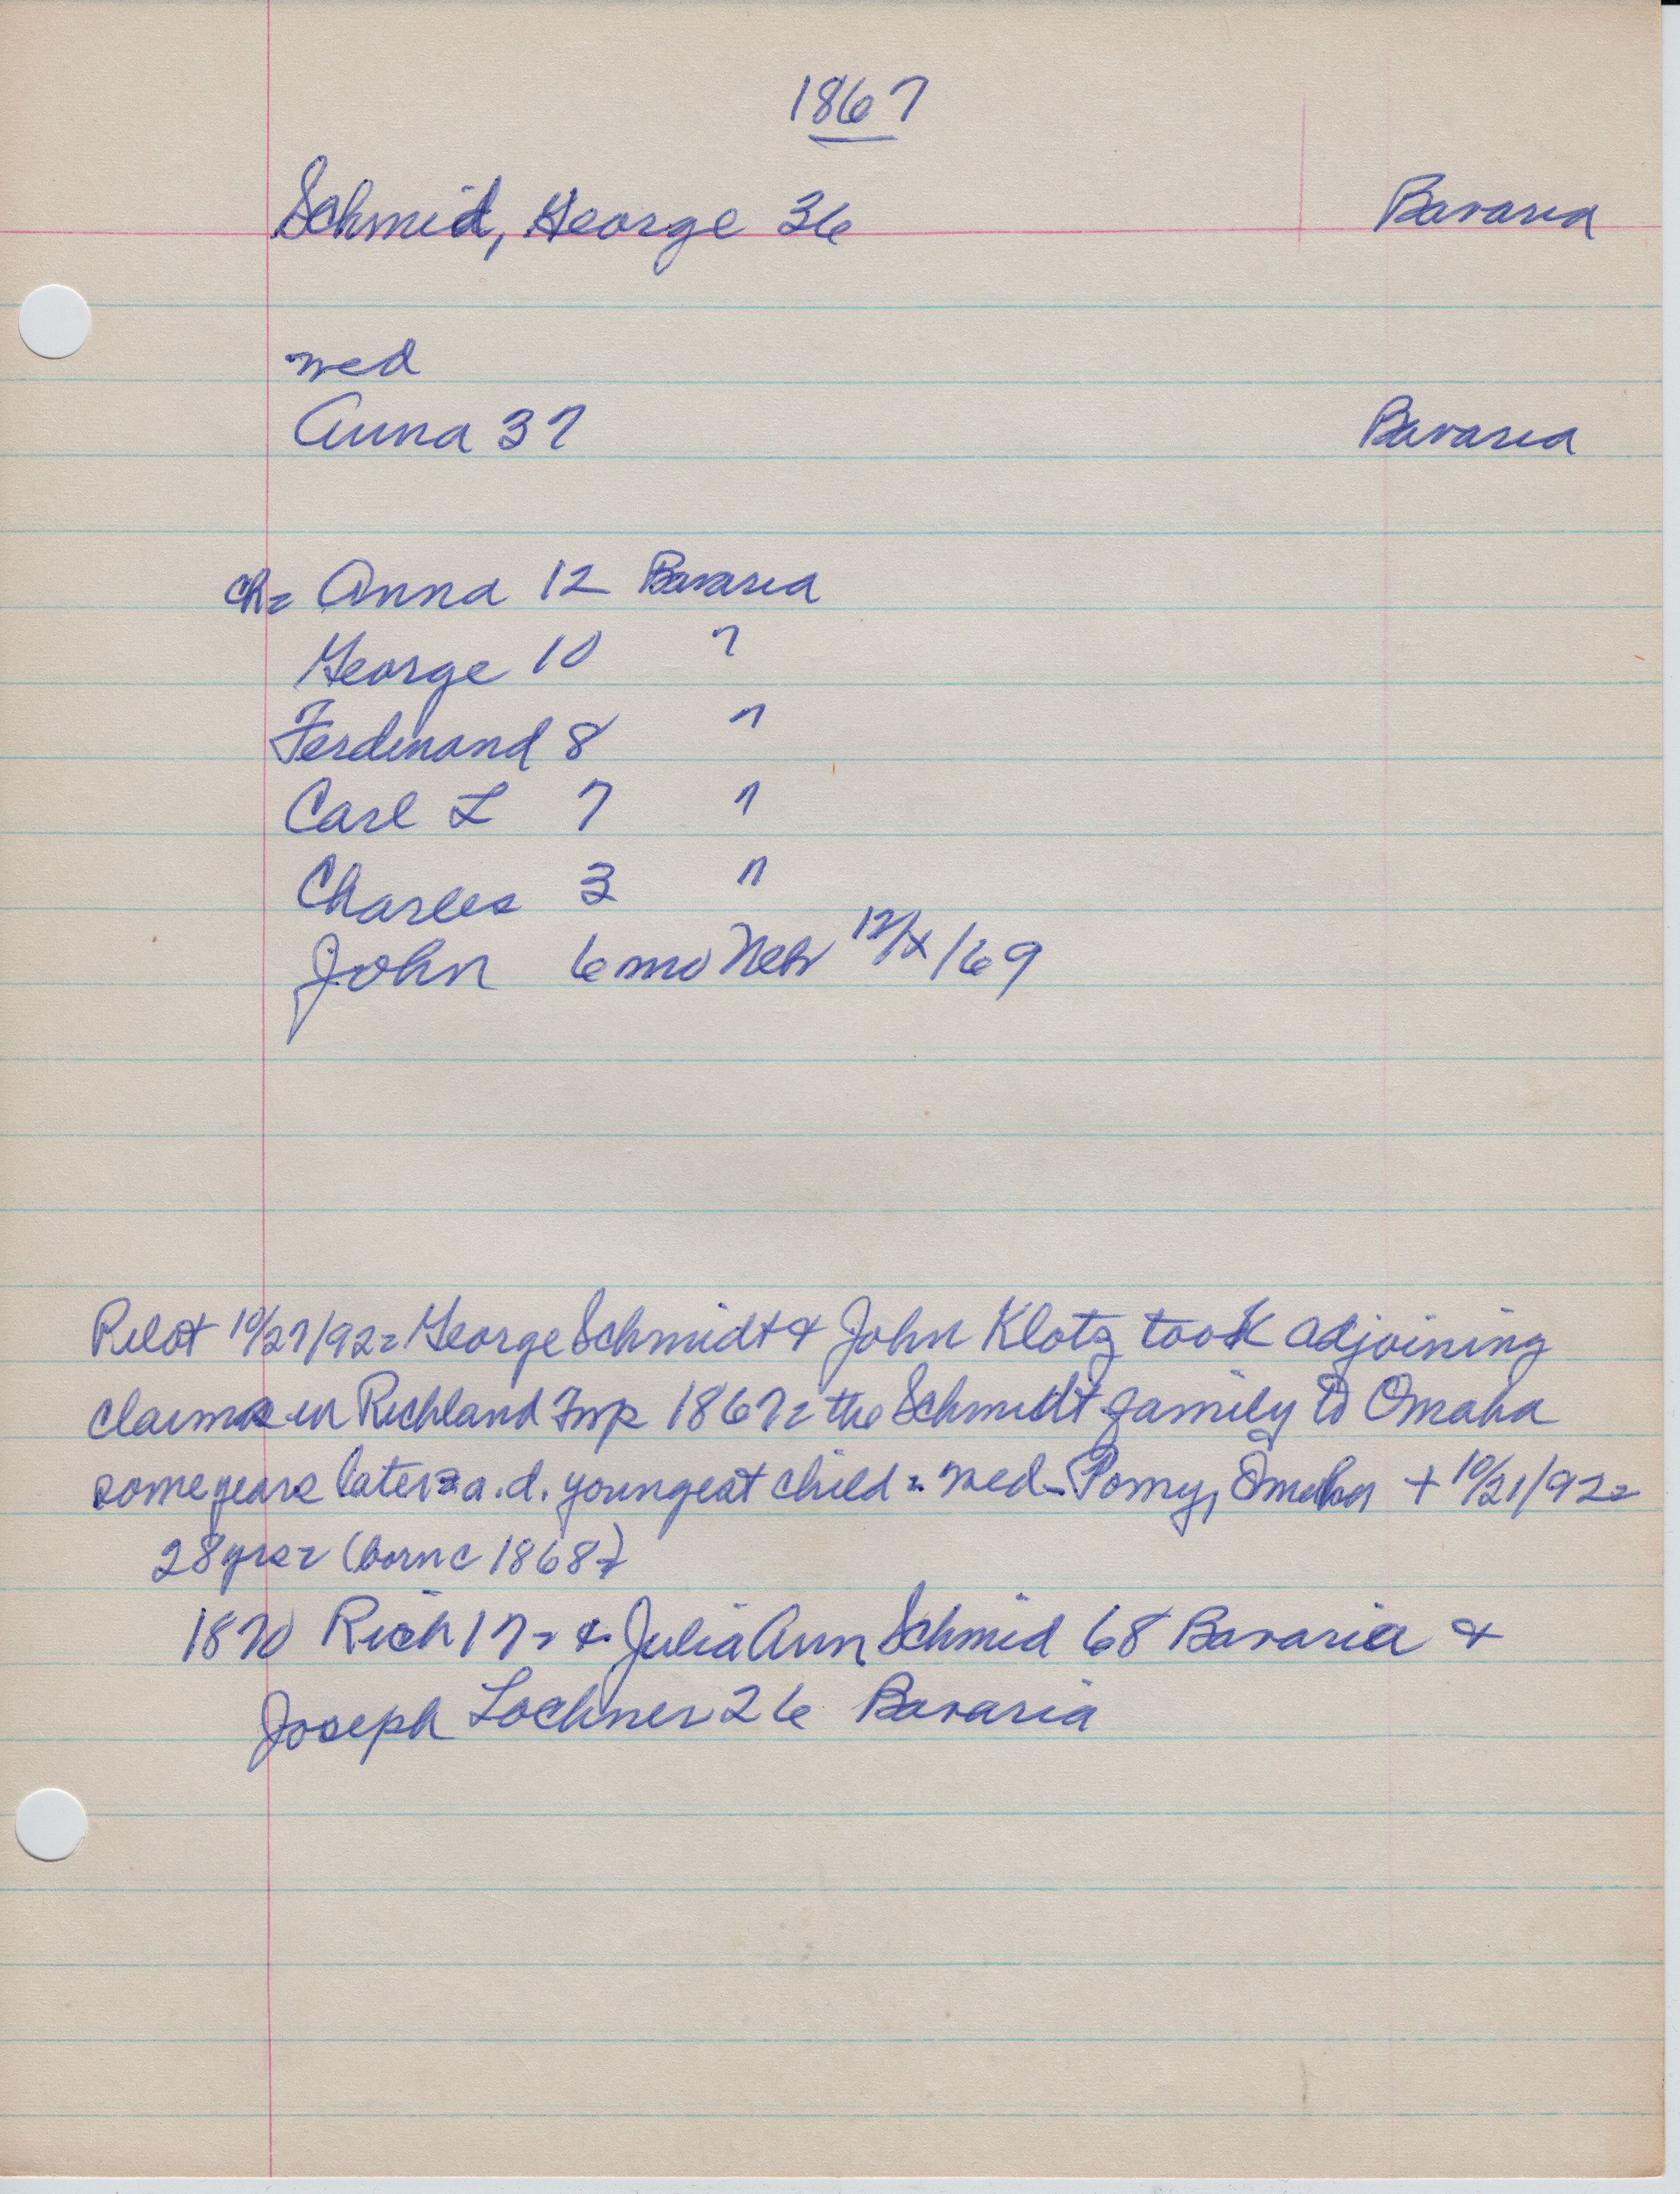 1867
Schmid, George 36 Bavaria
med
Anna 37 Bavaria
ch= Anna 12 Bavaria
George 10 "
Ferdinand 8 "
Carl L 7 "
Charles 3 "
John 6 mo Neb 12/x/69
Pilot 10/27/92= George Schmidt & John Klotz took adjoining
claims in Richland Twp 1867= the Schmidt family to Omaha
some years later= a.d. youngest child = med - Pomy, Omaha + 10/21/92=
28 yrs= (born c 1868?)
1870 Rich 17= & Julia Ann Schmid 68 Bavaria &
Joseph Lochner 26 Bavaria